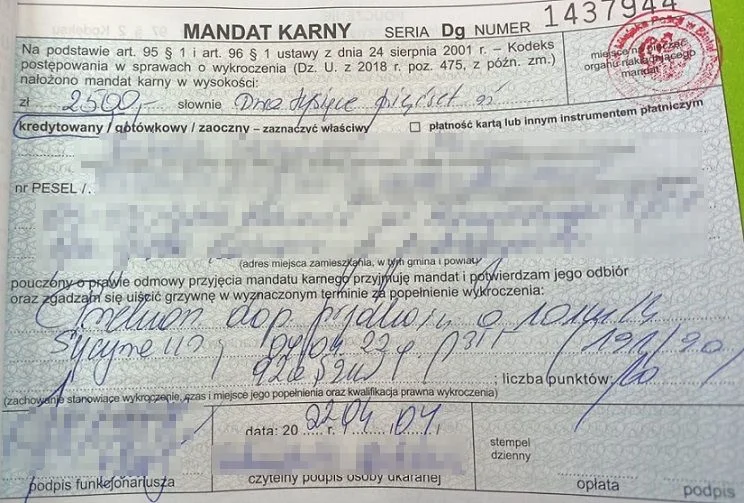 MANDAT KARNY SERIA Dg NUMER 1437944
Na podstawie art. 95 § 1 i art. 96 § 1 ustawy z dnia 24 sierpnia 2001 r. – Kodeks
postępowania w sprawach o wykroczenia (Dz. U. z 2018 r. poz. 475, z późn. zm.)
nałożono mandat karny w wysokości:
miejsce na pieczęć
organu nakładającego
mandat
zł 2500,- słownie Dwa tysiące pięćset zł
kredytowany / gotówkowy / zaoczny – zaznaczyć właściwy
płatność kartą lub innym instrumentem płatniczym
nr PESEL /.
(adres miejsca zamieszkania, w tym gmina i powiat)
pouczony o prawie odmowy przyjęcia mandatu karnego przyjmuję mandat i potwierdzam jego odbiór
oraz zgadzam się uiścić grzywnę w wyznaczonym terminie za popełnienie wykroczenia:
dop prędkości o
04.04.22 (191/90)
92a ; liczba punktów: 10
(zachowanie stanowiące wykroczenie, czas i miejsce jego popełnienia oraz kwalifikacja prawna wykroczenia)
data: 2022 r. 04.04
stempel
dzienny
podpis funkcjonariusza
czytelny podpis osoby ukaranej
opłata
podpis